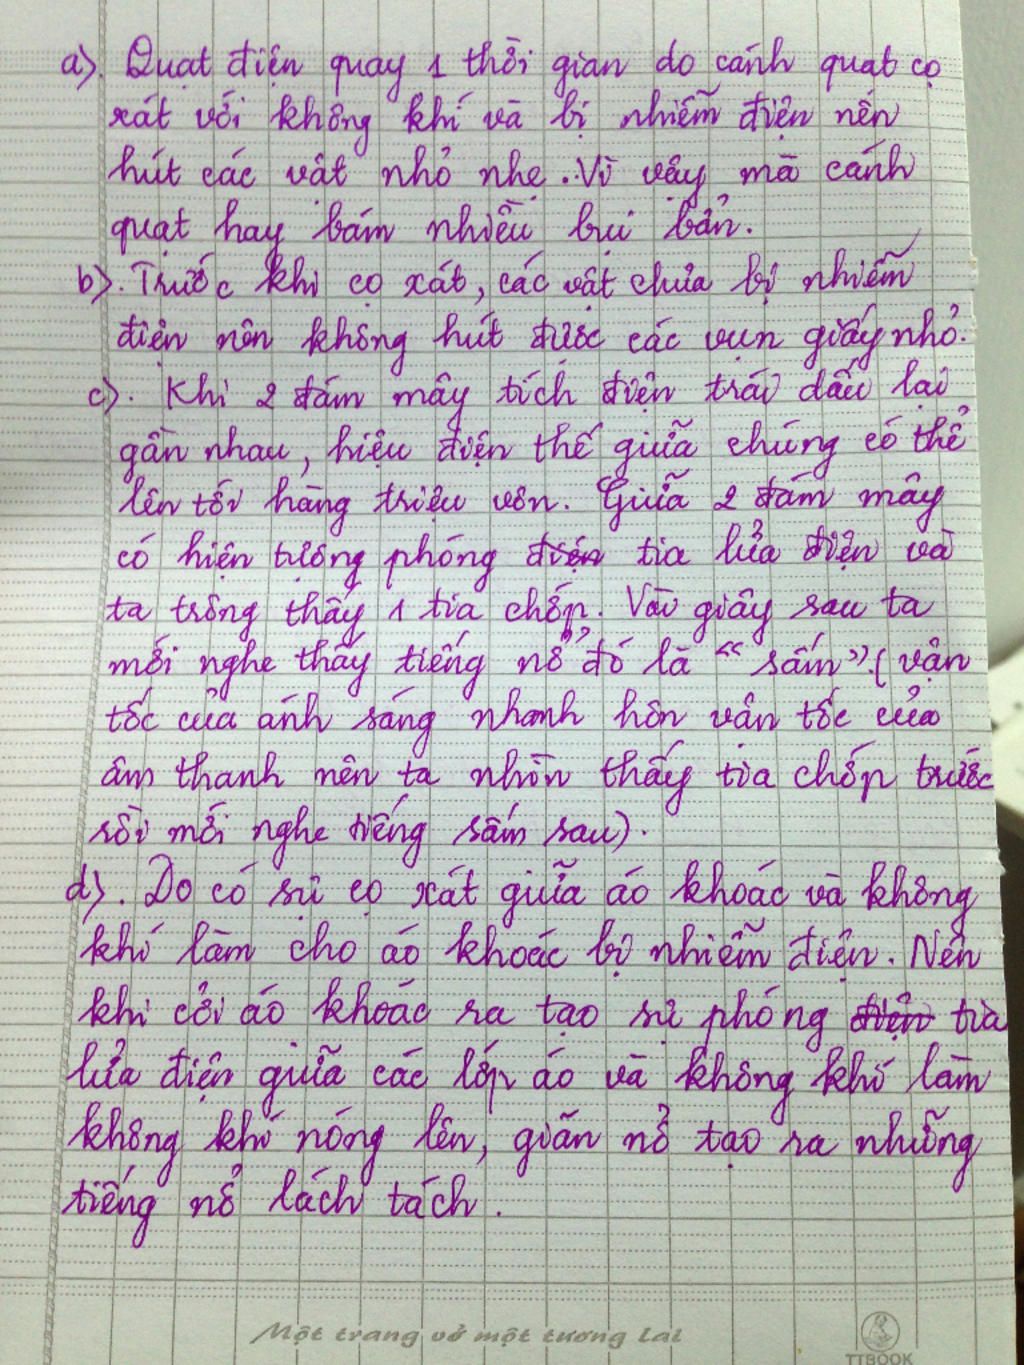 a). Quạt điện quay 1 thời gian do cánh quạt cọ
xát với không khí và bị nhiễm điện nên
hút các vật nhỏ nhẹ. Vì vậy mà cánh
quạt hay bám nhiều bụi bẩn.
b). Trước khi cọ xát, các vật chưa bị nhiễm
điện nên không hút được các vụn giấy nhỏ.
c). Khi 2 đám mây tích điện trái dấu lại
gần nhau, hiệu điện thế giữa chúng có thể
lên tới hàng triệu vôn. Giữa 2 đám mây
có hiện tượng phóng điện tia lửa điện và
ta trông thấy 1 tia chớp. Vài giây sau ta
mới nghe thấy tiếng nổ đó là "sấm". (vận
tốc của ánh sáng nhanh hơn vân tốc của
âm thanh nên ta nhìn thấy tia chớp trước
rồi mới nghe tiếng sấm sau).
d). Do có sự cọ xát giữa áo khoác và không
khí làm cho áo khoác bị nhiễm điện. Nên
khi cởi áo khoác ra tạo sự phóng điện tia
lửa điện giữa các lớp áo và không khí làm
không khí nóng lên, giãn nở tạo ra những
tiếng nổ lách tách.
Một trang vở một tương lai
TTBOOK